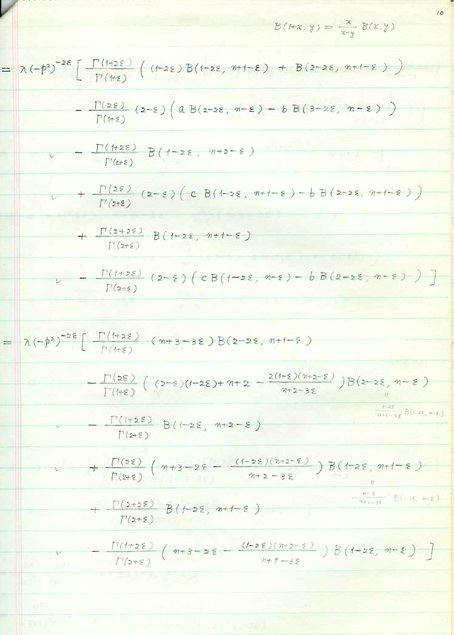 10
B(1+x, y) = x/(x-y) B(x,y)
= λ(-p²)^{-2ε} [ Γ(1+2ε)/Γ(1+ε) ( (1-2ε) B(1-2ε, n+1-ε) + B(2-2ε, n+1-ε) )
- Γ(2ε)/Γ(1+ε) (2-ε) ( a B(2-2ε, n-ε) - b B(3-2ε, n-ε) )
✓ - Γ(1+2ε)/Γ(2+ε) B(1-2ε, n+2-ε)
✓ + Γ(2ε)/Γ(2+ε) (2-ε) ( c B(1-2ε, n+1-ε) - b B(2-2ε, n+1-ε) )
+ Γ(2+2ε)/Γ(2+ε) B(1-2ε, n+1-ε)
✓ - Γ(1+2ε)/Γ(2+ε) (2-ε) ( c B(1-2ε, n-ε) - b B(2-2ε, n-ε) ) ]
= λ(-p²)^{-2ε} [ Γ(1+2ε)/Γ(1+ε) (n+3-3ε) B(2-2ε, n+1-ε)
- Γ(2ε)/Γ(1+ε) ( (2-ε)(1-2ε) + n+2 - 2(1-ε)(n+2-ε)/(n+2-3ε) ) B(2-2ε, n-ε)
✓ - Γ(1+2ε)/Γ(2+ε) B(1-2ε, n+2-ε)
✓ + Γ(2ε)/Γ(2+ε) ( n+3-2ε - (1-2ε)(n+2-ε)/(n+2-3ε) ) B(1-2ε, n+1-ε)
+ Γ(2+2ε)/Γ(2+ε) B(1-2ε, n+1-ε)
✓ - Γ(1+2ε)/Γ(2+ε) ( n+3-2ε - (1-2ε)(n+2-ε)/(n+1-3ε) ) B(1-2ε, n-ε) ]